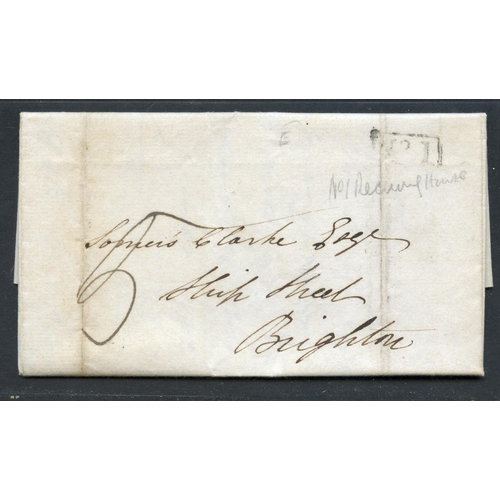 E
No 1
No 1 Receiving House
Somers Clarke Esqr
Ship Street
Brighton